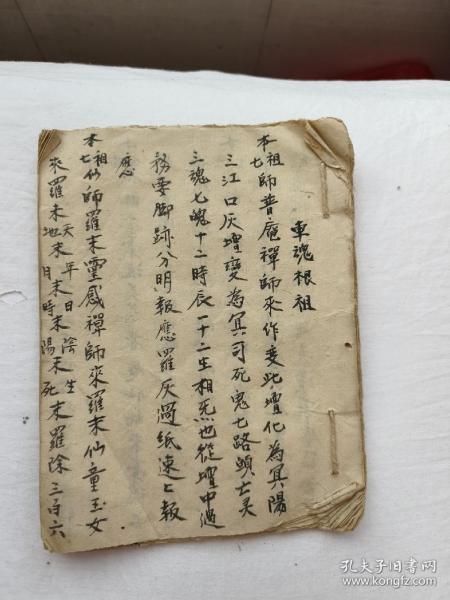 車魂根祖
本祖七師普庵禪師來作变此壇化為冥陽
三江口灰壇變為冥司死鬼七路頭亡灵
三魂七魄十二時辰一十二生相死也從壇中過
務要脚跡分明報應羅灰過紙速七報
應
本祖七仙師羅末靈感禪師來羅末仙童玉女
來羅末天地末年月末日時末陰陽末生死末羅除三百六
孔夫子旧书网
www.kongfz.com